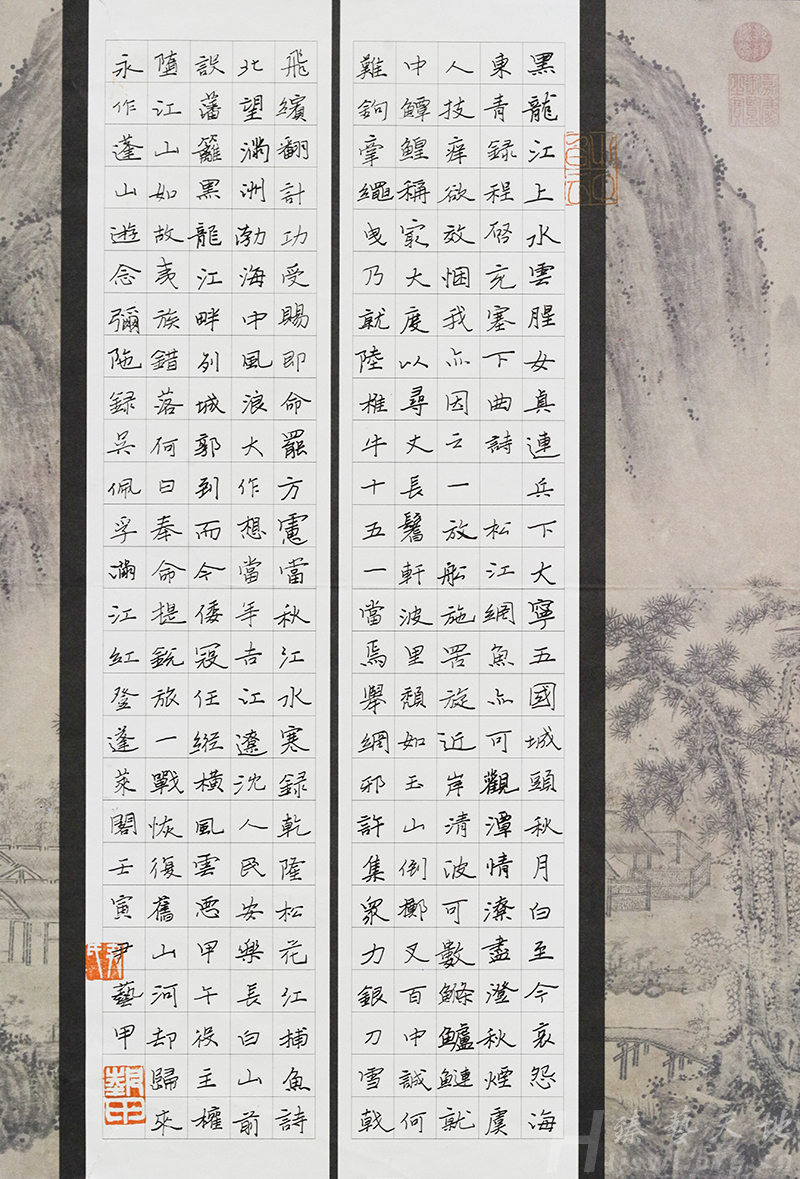 黑龍江上水雲腥女真連兵下大寧五國城頭秋月白至今哀怨海
東青録程啓充塞下曲詩 松江網魚亦可觀潭情潦盡澄秋煙虞
人技痒欲效悃我亦因之一放船施罟旋近岸清波可數鰷鱸鰱就
中鱏鰉稱最大度以尋丈長鬐軒波里頹如玉山倒擲叉百中誠何
難鉤牽繩曳乃就陸椎牛十五一當焉舉網邪許集衆力銀刀雪戟
飛繽翻計功受賜即命罷方慮當秋江水寒録乾隆松花江捕魚詩
北望滿洲渤海中風浪大作想當年吉江遼沈人民安樂長白山前
設藩籬黑龍江畔列城郭到而今倭寇任縱橫風雲惡甲午役主權
墮江山如故夷族錯落何日奉命提銳旅一戰恢復舊山河却歸來
永作蓬山遊念彌陁録吳佩孚滿江紅登蓬萊閣壬寅尹藝甲